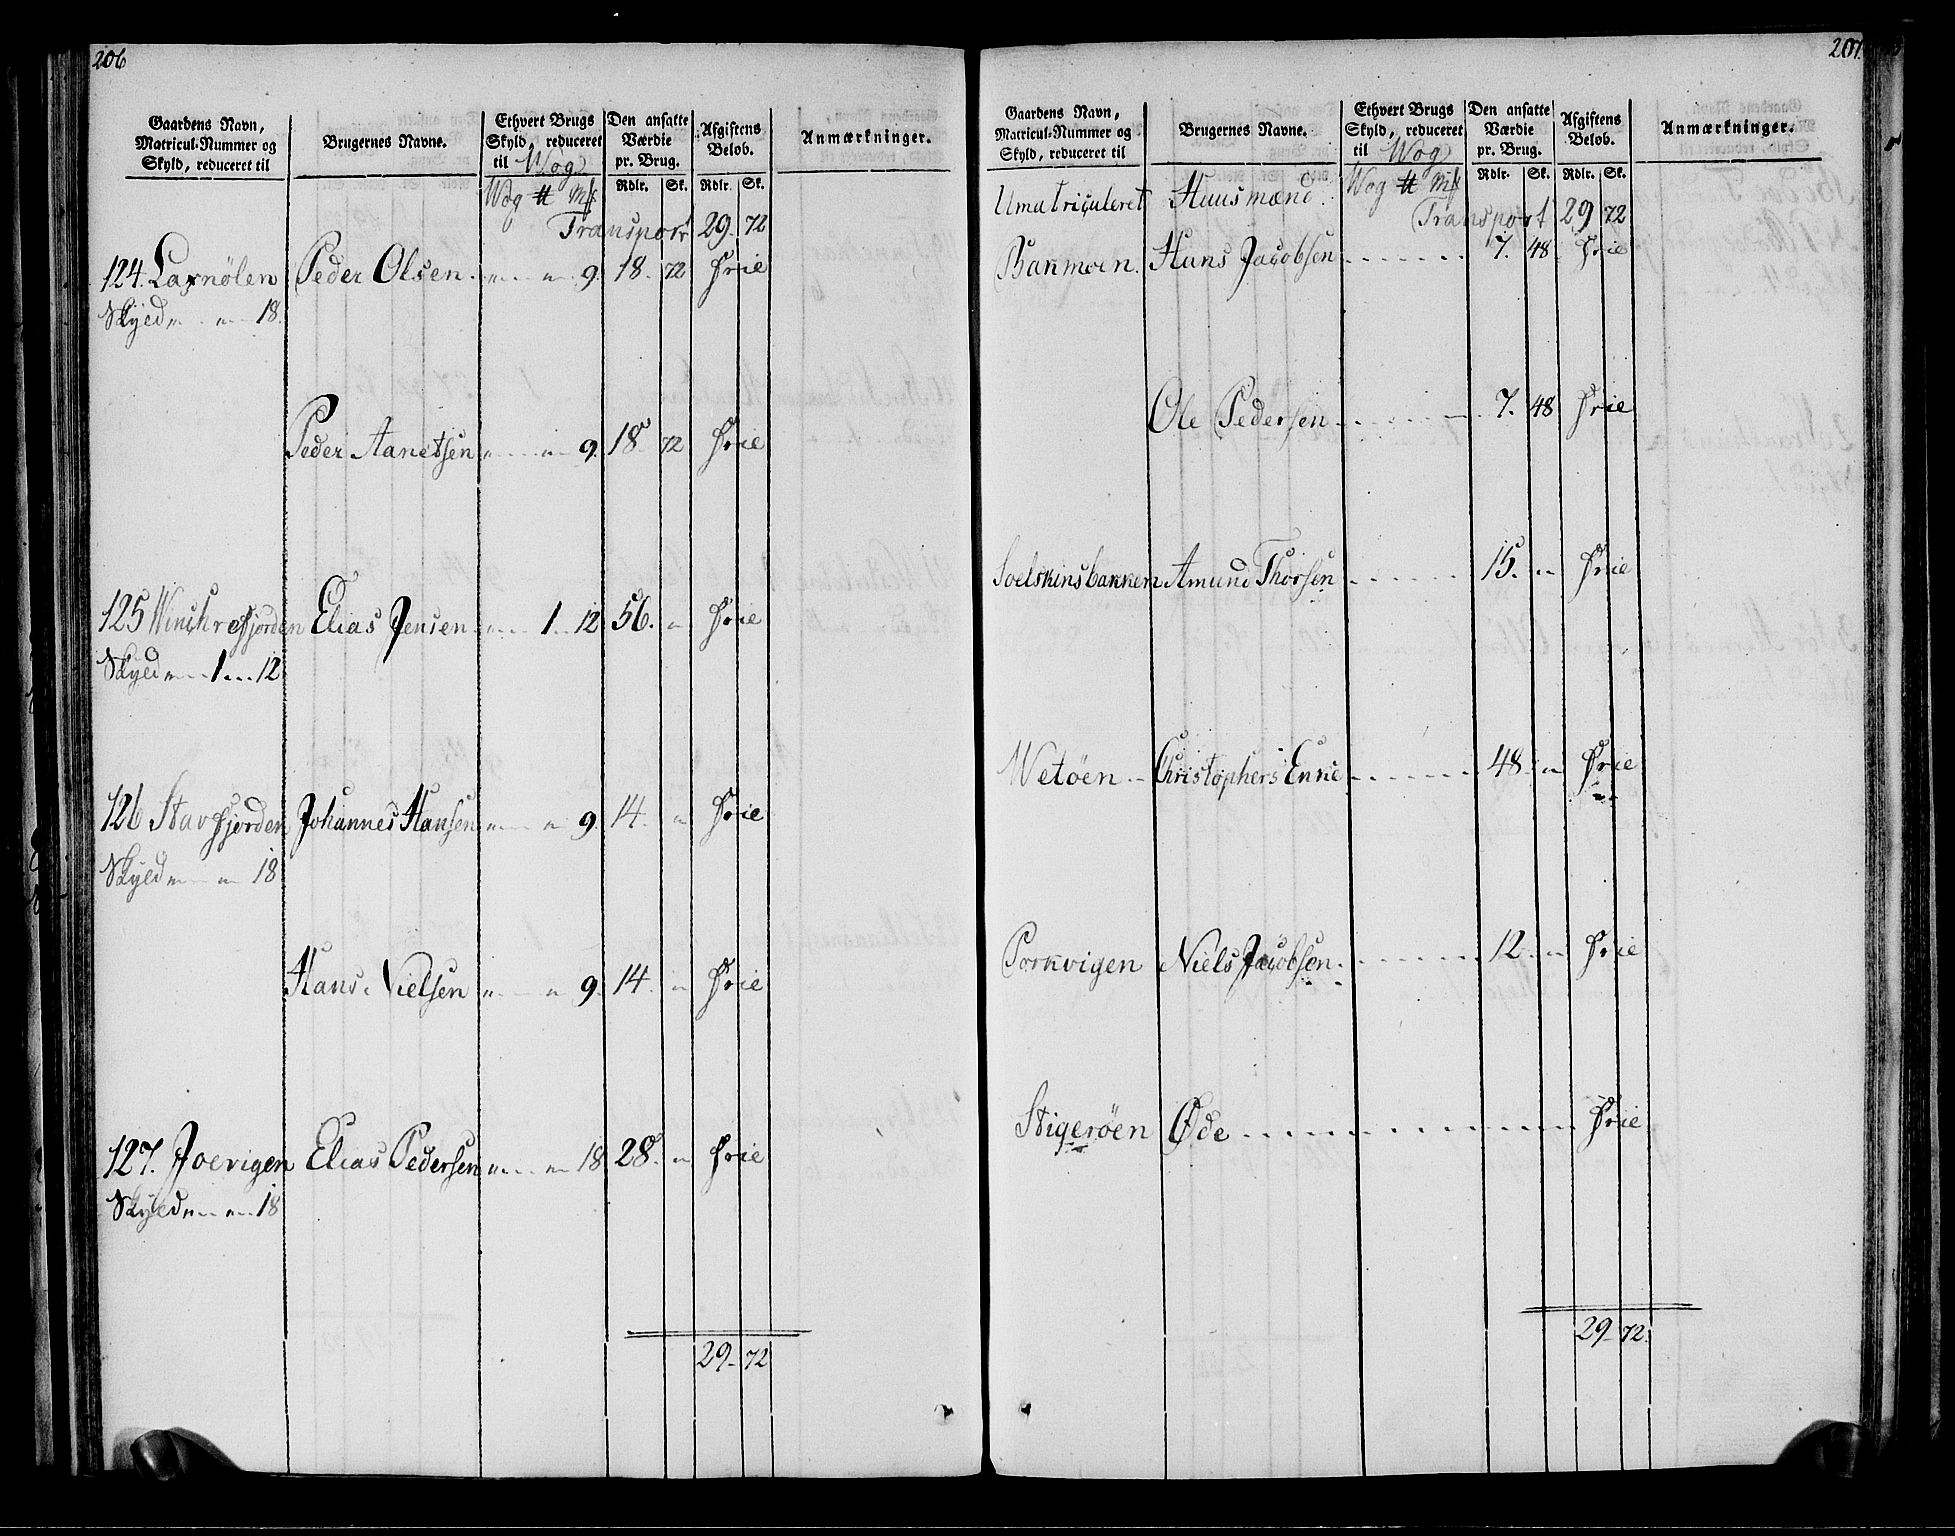 206
Gaardens Navn, Matricul-Nummer og Skyld, reduceret til | Brugernes Navne. | Ethvert Brugs Skyld, reduceret til Wog | Den ansatte Værdie pr. Brug. | Afgiftens Beløb. | Anmærkninger.
Wog ℔ Mk | Rdlr. | Sk. | Rdlr. | Sk.
Transport 29 72
124. Laxnölen Peder Olsen 9. 18. 72 Frie
Skyld 18.
Peder Aanetsen 9. 18. 72 Frie
125 Elias Jensen 1 12 56. Frie
Skyld 1 12
126 Stavfjorden Johannes Hansen 9. 14. Frie
Skyld 18
Hans Nielsen 9. 14. Frie
127. Joevigen Elias Pedersen 18 28. Frie
Skyld 18
29. 72
207.
Gaardens Navn, Matricul-Nummer og Skyld, reduceret til | Brugernes Navne. | Ethvert Brugs Skyld, reduceret til Wog | Den ansatte Værdie pr. Brug. | Afgiftens Beløb. | Anmærkninger.
Wog ℔ Mk | Rdlr. | Sk. | Rdlr. | Sk.
Umatriculeret Huusmænd
Transport 29 72
Bakmoen. Hans Jacobsen 7. 48 Frie
Ole Pedersen 7. 48 Frie
Soelskinsbakken Amund Thorsen 15. Frie
Wetöen Christophers Enke 48 Frie
Porkvigen Niels Jacobsen 12. Frie
Stigeröen Øde Frie
29. 72.